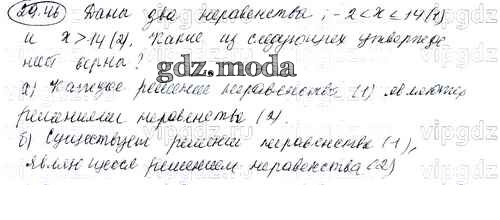 29.46 Даны два неравенства: -2 < x ≤ 14 (1)
и x > 14 (2). Какие из следующих утвержде
ний верны?
gdz.moda
а) Каждое решение неравенства (1) является
решением неравенства (2).
б) Существуют решения неравенства (1),
являющиеся решением неравенства (2)